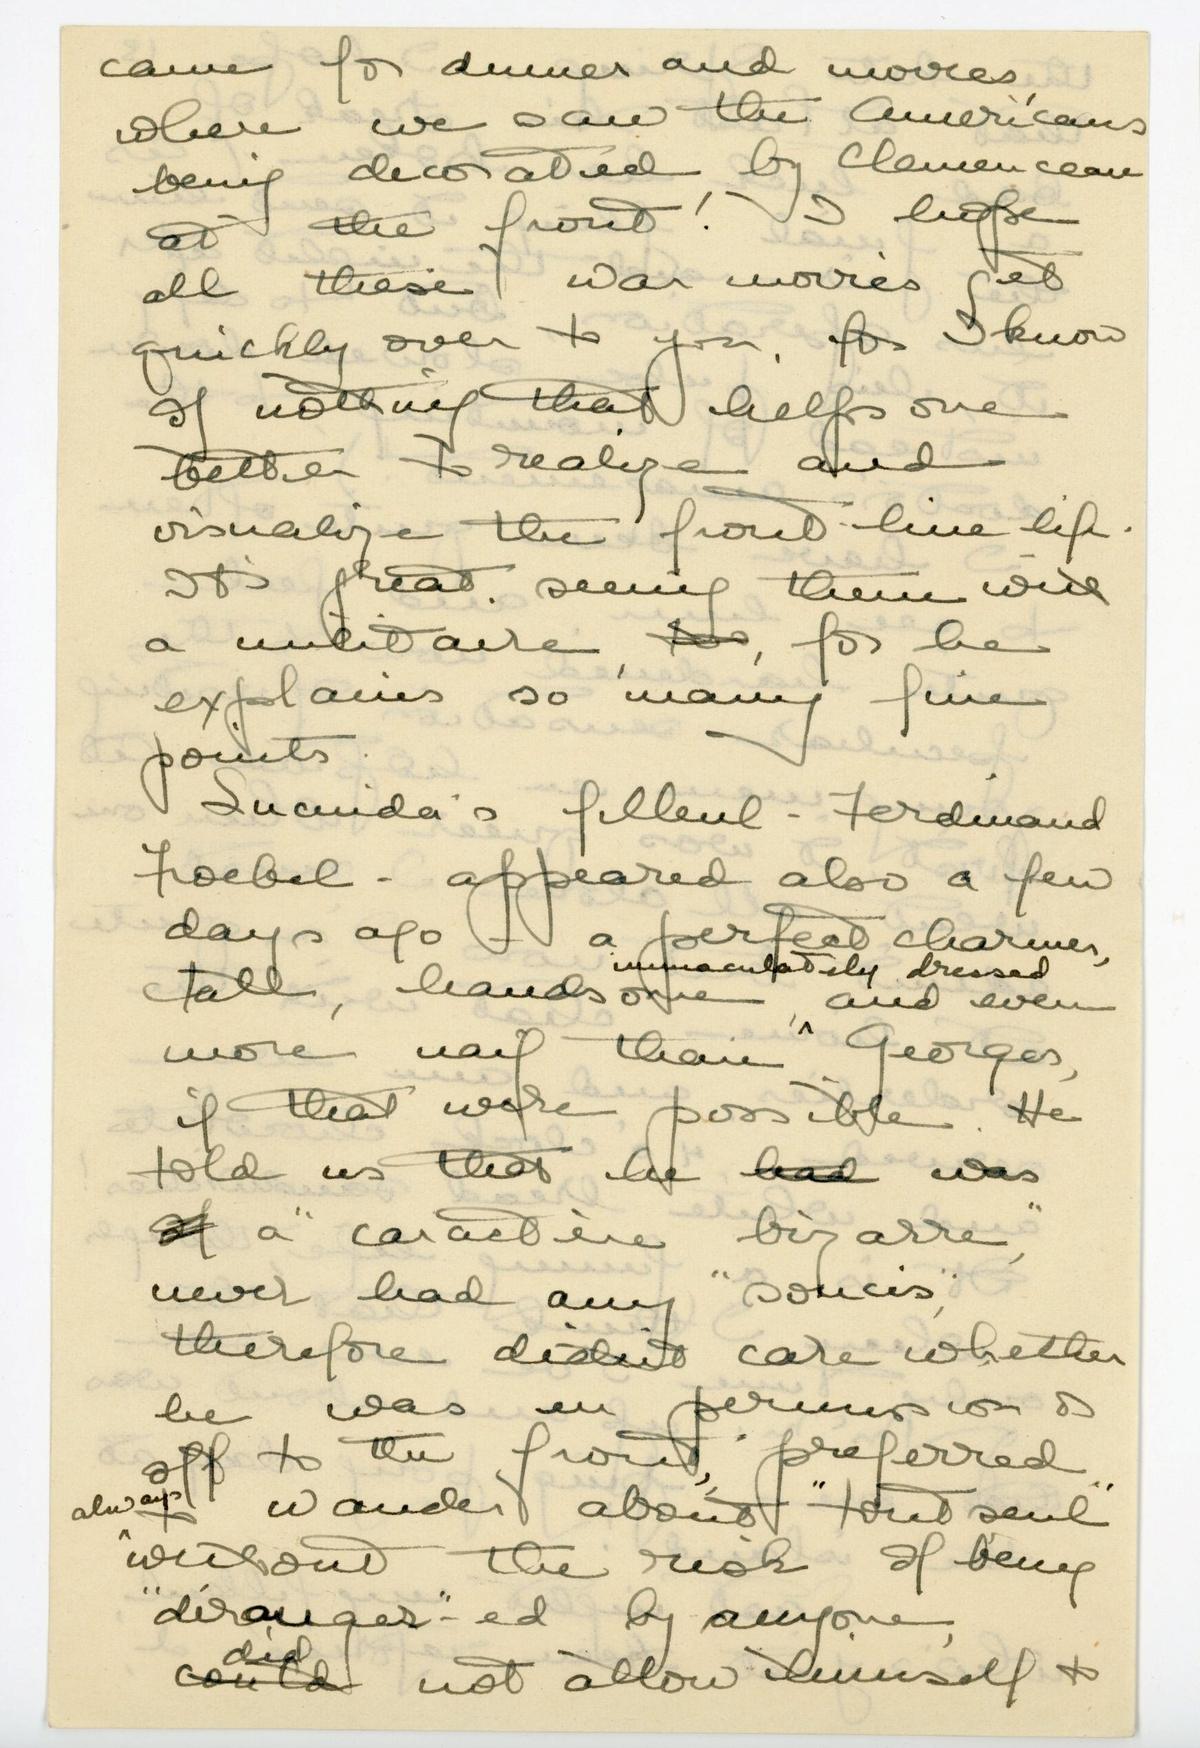 came for dinner and movies,
where we saw the Americans
being decorated by Clemenceau
at the front! I hope
all these war movies get
quickly over to you, for I know
of nothing that helps one
better to realize and
visualize the front-line life.
It's great seeing them with
a militaire, too, for he
explains so many fine
points.
Lucinda's filleul - Ferdinand
Froebel - appeared also a few
days ago - a perfect charmer,
immaculately dressed
tall, handsome, ^ and even
more naif than Georges,
if that were possible. He
told us that he had was
of a "caractère bizarre,"
never had any "soucis,"
therefore didn't care whether
he was en permission or
off to the front, preferred
always
^ to wander about "tout seul"
without the risk of being
"déranger"-ed by anyone,
did
could not allow himself to